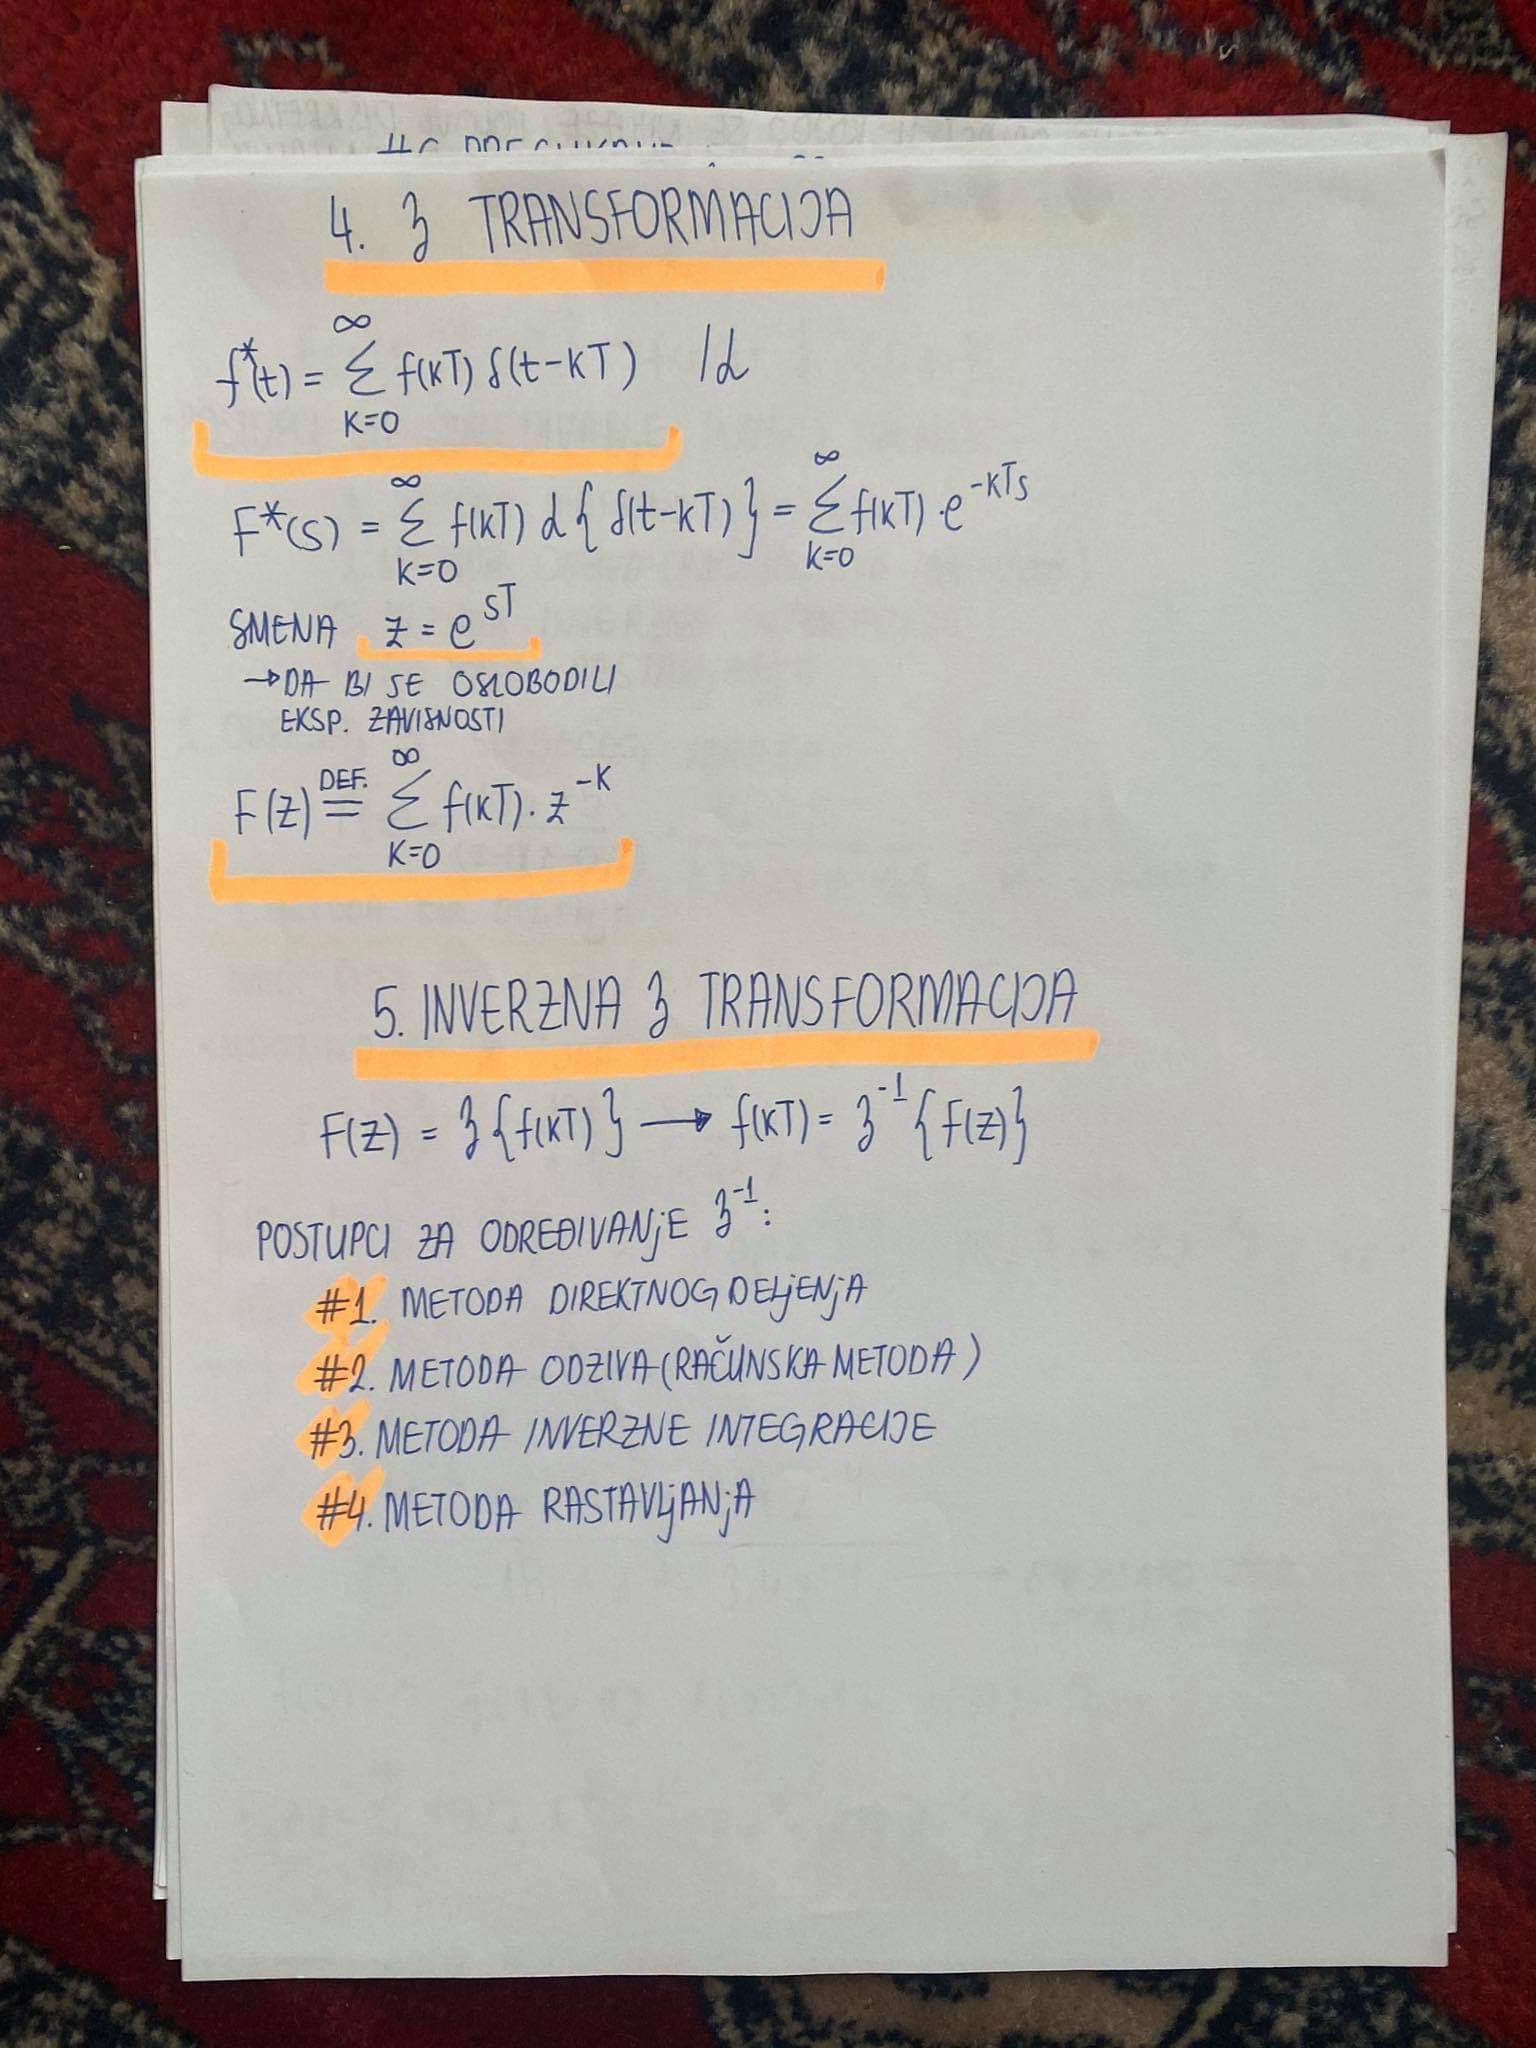 4. ʒ TRANSFORMACIJA
f*(t) = ∞ Σ K=0 f(KT) δ(t-KT) /ℒ
F*(S) = ∞ Σ K=0 f(KT) ℒ{δ(t-KT)} = ∞ Σ K=0 f(KT) · e^-KTS
SMENA z = e^ST
→ DA BI SE OSLOBODILI
EKSP. ZAVISNOSTI
F(z) DEF. = ∞ Σ K=0 f(KT) · z^-K
5. INVERZNA ʒ TRANSFORMACIJA
F(Z) = ʒ{f(KT)} → f(KT) = ʒ^-1{F(z)}
POSTUPCI ZA ODREĐIVANjE ʒ^-1:
#1. METODA DIREKTNOG DELjENjA
#2. METODA ODZIVA (RAČUNSKA METODA)
#3. METODA INVERZNE INTEGRACIJE
#4. METODA RASTAVLjANjA